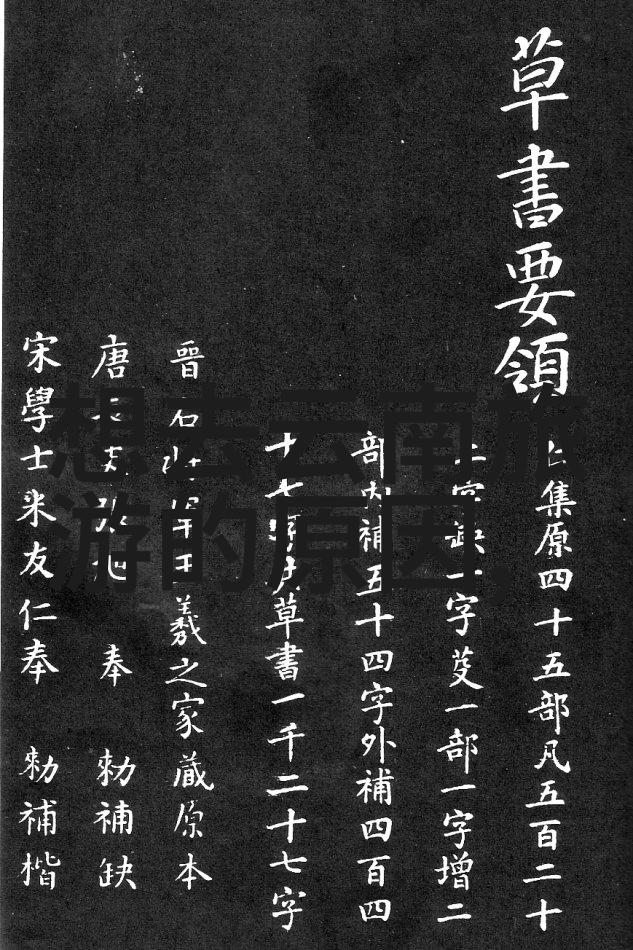 草書要領
集原四十五部凡五百二十
字缺一字芟一部一字增二
部內補五十四字外補四百四
十七字共草書一千二十七字
晉右將軍王羲之家藏原本
唐 奉 勑補缺
宋學士米友仁奉 勑補楷
想去云南旅
游的原因,